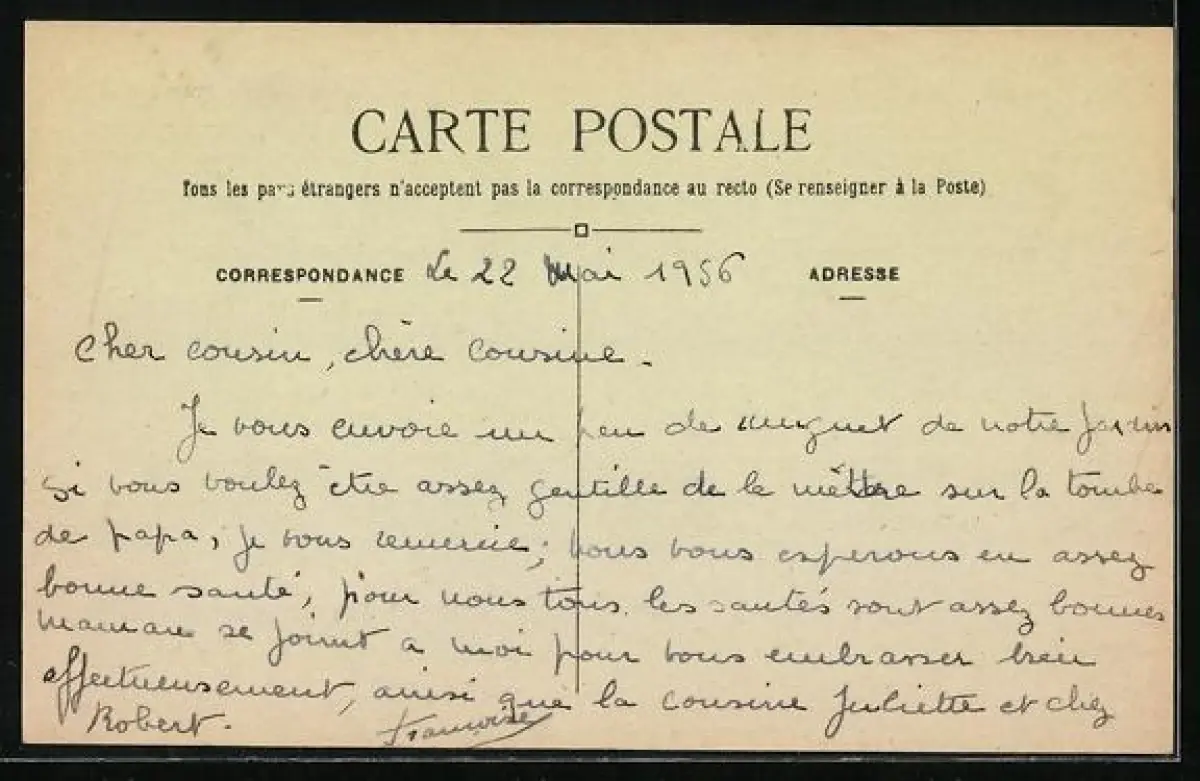 CARTE POSTALE
Tous les pays étrangers n'acceptent pas la correspondance au recto (Se renseigner à la Poste)
CORRESPONDANCE Le 22 Mai 1956 ADRESSE
Cher cousin, chère Cousine.
Je vous envoie un peu de muguet de notre jardin
si vous voulez être assez gentille de le mettre sur la tombe
de papa, je vous remercie; nous vous esperons en assez
bonne santé, pour nous tous les santés sont assez bonnes
maman se joint a moi pour vous embrasser bien
affectueusement, ainsi que la cousine Juliette et chez
Robert. Francoise